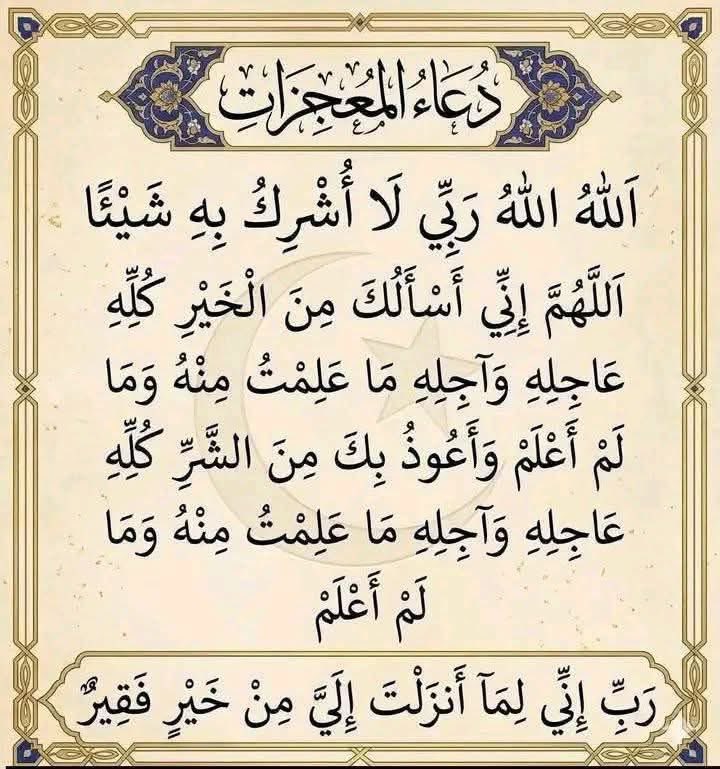 دُعَاءُ المُعْجِزَاتِ
اَللهُ اللهُ رَبِّي لَا أُشْرِكُ بِهِ شَيْئًا
اَللَّهُمَّ إِنِّي أَسْأَلُكَ مِنَ الْخَيْرِ كُلِّهِ
عَاجِلِهِ وَآجِلِهِ مَا عَلِمْتُ مِنْهُ وَمَا
لَمْ أَعْلَمْ وَأَعُوذُ بِكَ مِنَ الشَّرِّ كُلِّهِ
عَاجِلِهِ وَآجِلِهِ مَا عَلِمْتُ مِنْهُ وَمَا
لَمْ أَعْلَمْ
رَبِّ إِنِّي لِمَآ أَنزَلْتَ إِلَيَّ مِنْ خَيْرٍ فَقِيرٌ